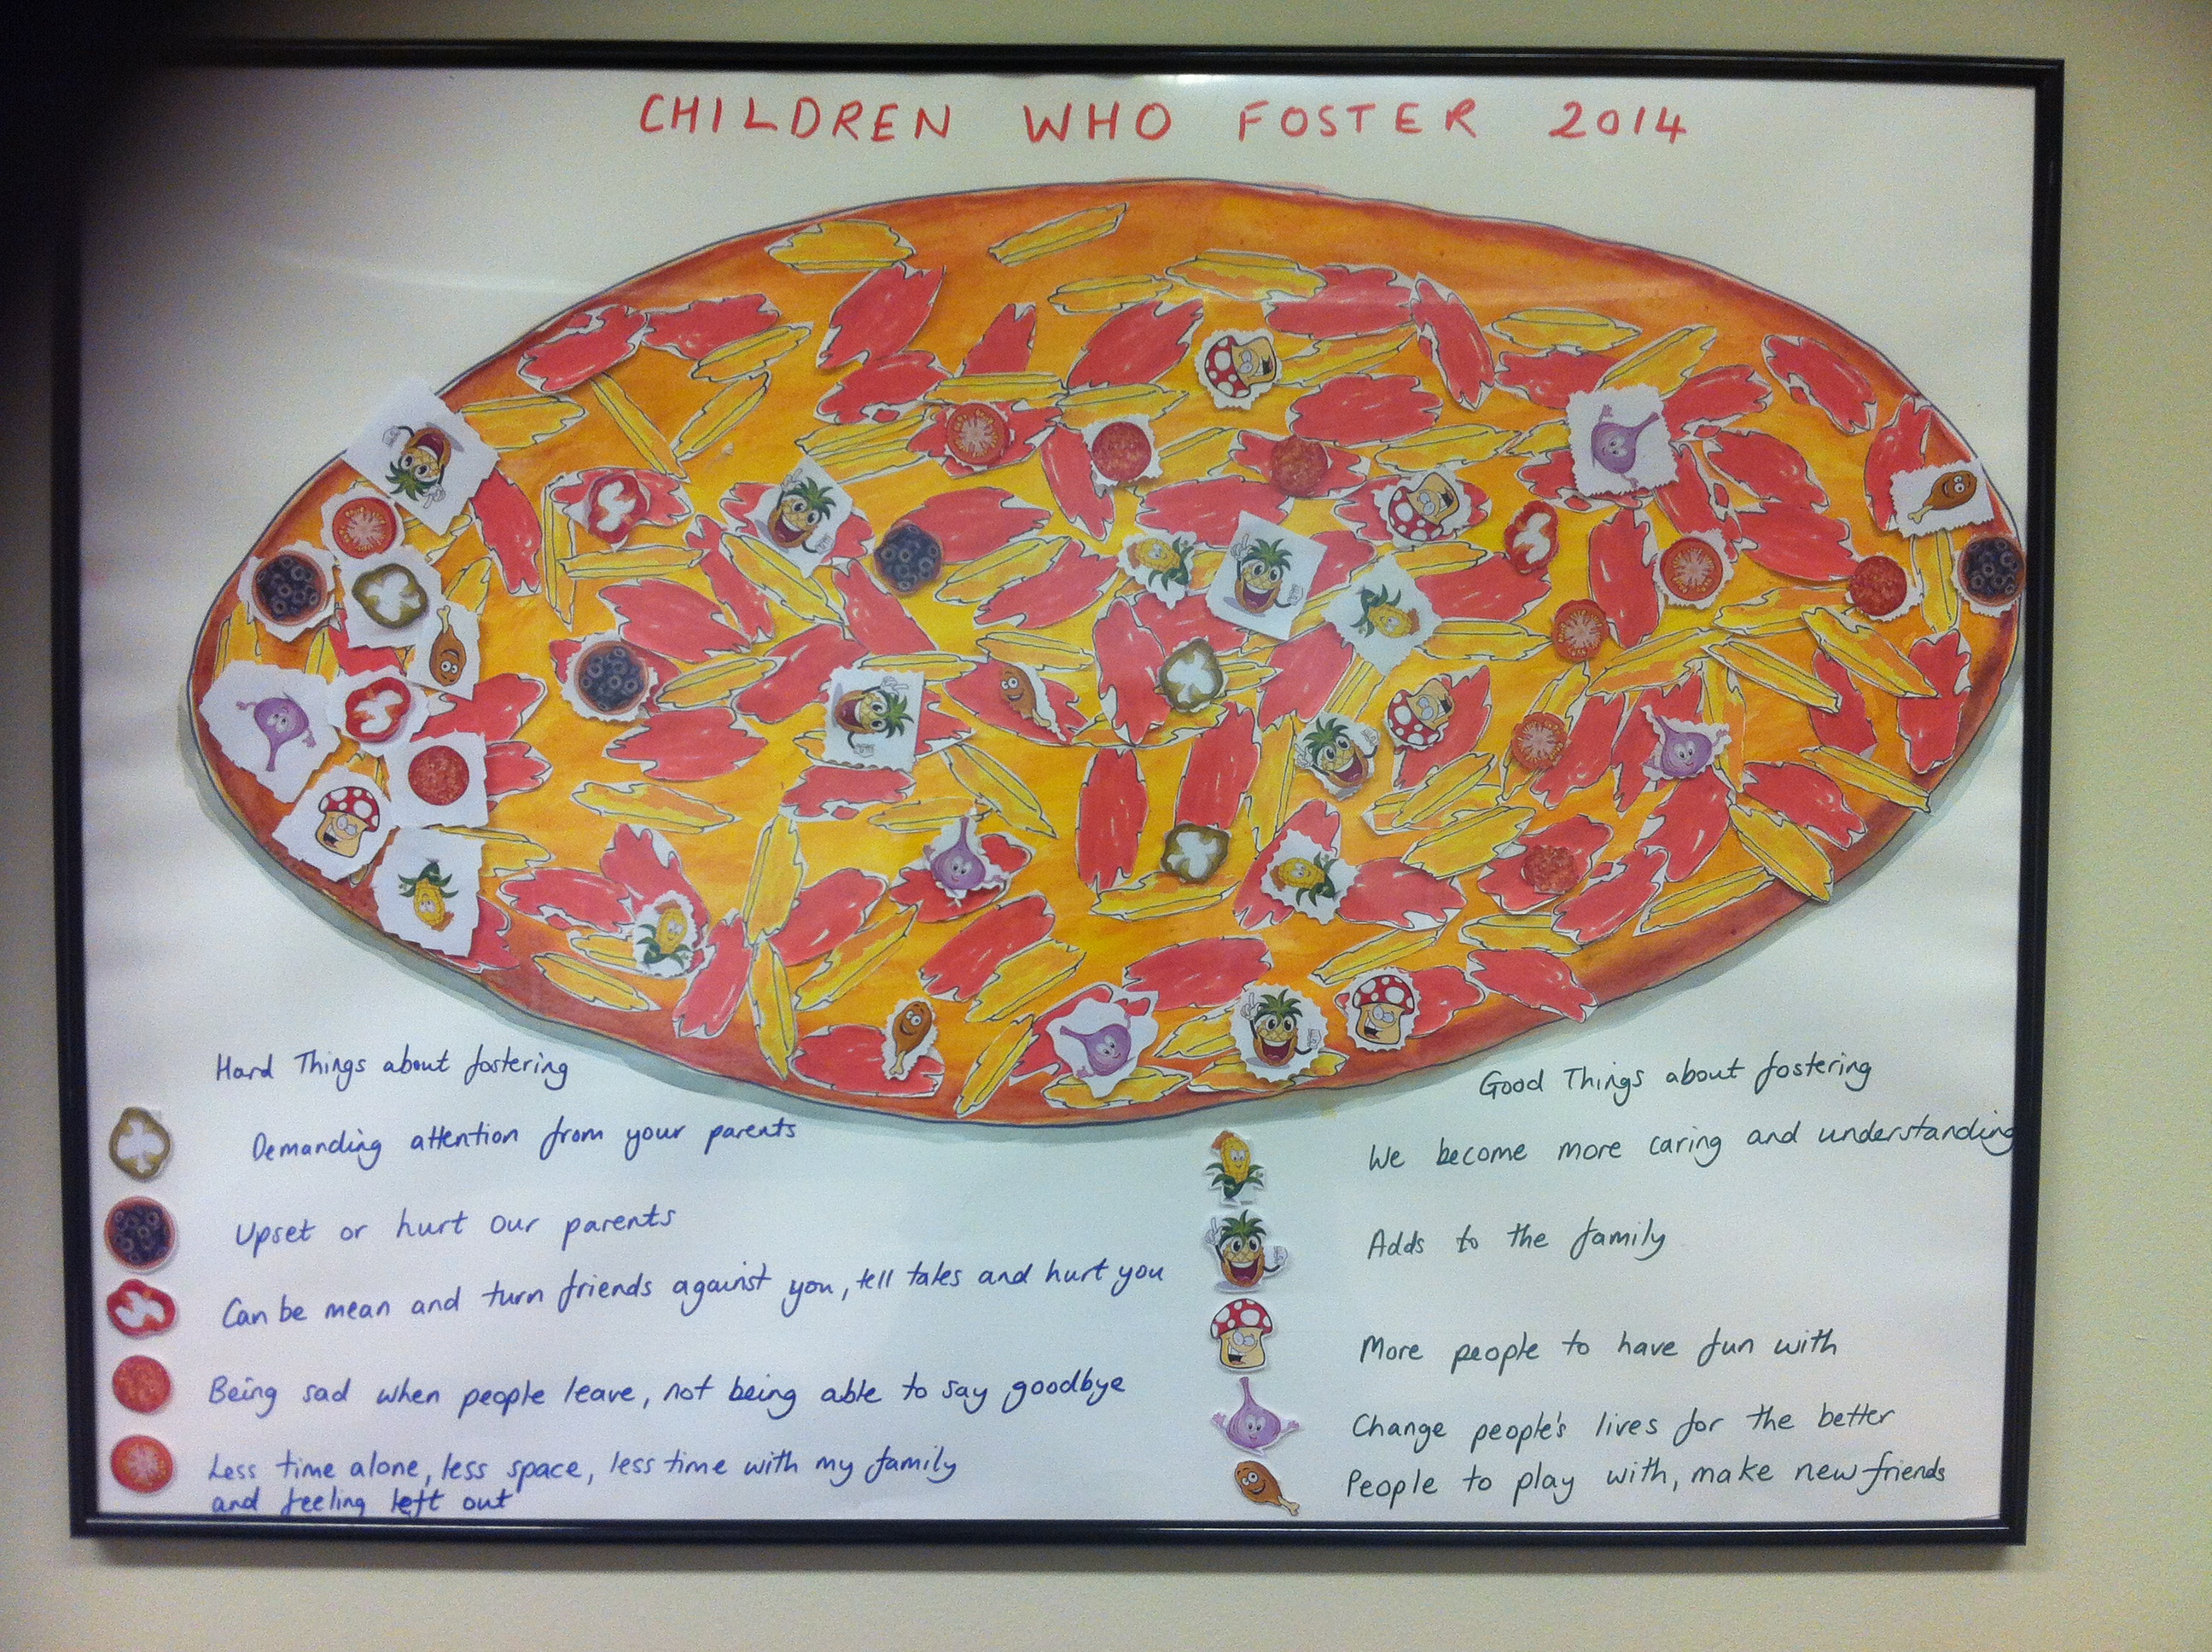 CHILDREN WHO FOSTER 2014
Hard Things about fostering
Demanding attention from your parents
Upset or hurt our parents
Can be mean and turn friends against you, tell tales and hurt you
Being sad when people leave, not being able to say goodbye
Less time alone, less space, less time with my family
and feeling left out
Good Things about fostering
We become more caring and understanding
Adds to the family
More people to have fun with
Change people's lives for the better
People to play with, make new friends